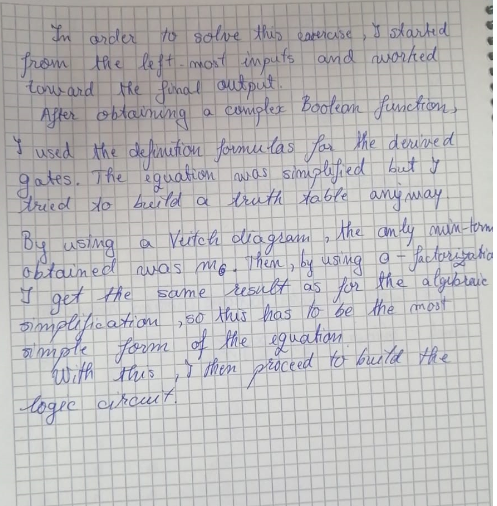 In order to solve this exercise, I started
from the left-most inputs and worked
toward the final output.
After obtaining a complex Boolean function,
I used the definition formulas for the derived
gates. The equation was simplified but I
tried to build a truth table anyway.
By using a Veitch diagram, the only min-term
obtained was m6. Then, by using a - factorizatio
I get the same result as for the algebraic
simplification, so this has to be the most
simple form of the equation.
With this, I then proceed to build the
logic circuit.